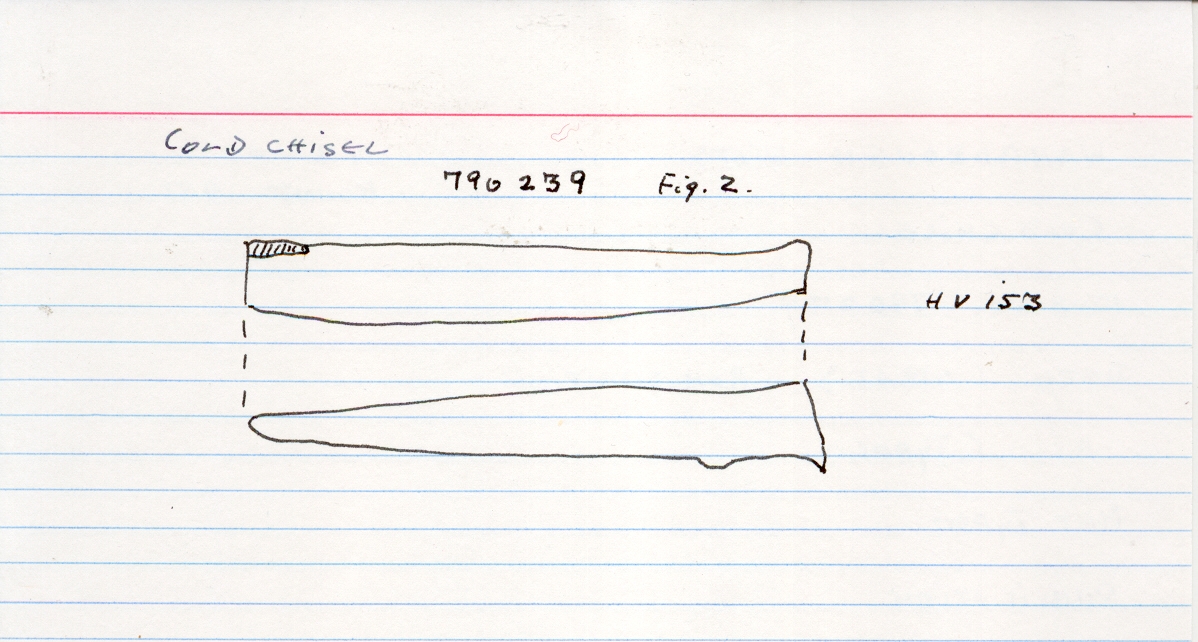 COLD CHISEL
790239 Fig. 2.
HV 153